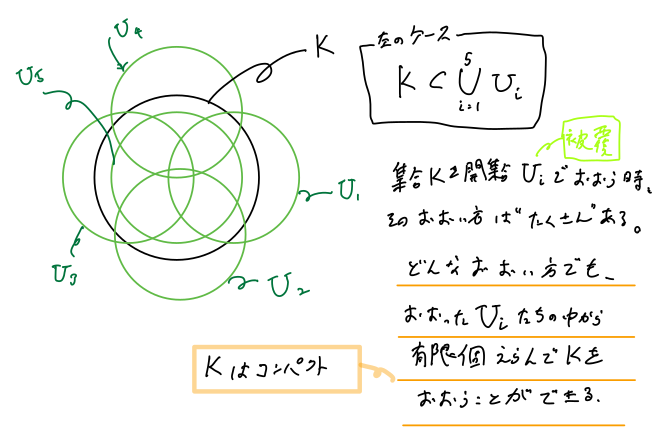 U₄
U₅
K
U₁
U₃
U₂
左のケース
K ⊂ ⋃ᵢ₌₁⁵ Uᵢ
被覆
集合Kを開集合Uᵢでおおう時、
そのおおい方は"たくさん"ある。
どんなおおい方でも、
おおったUᵢたちの中から
有限個えらんでKを
おおうことができる.
Kはコンパクト